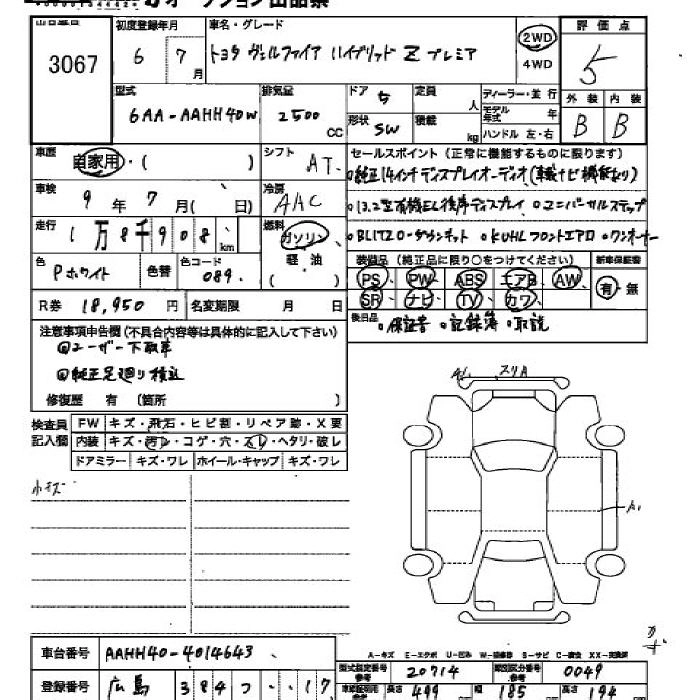 オークション出品票
3067
初度登録年月 車名・グレード
6 7月 トヨタ ヴェルファイア ハイブリッド Z プレミア
2WD
4WD
評価点
5
型式 排気量 ドア 5 定員 人 ディーラー・並行
6AA-AAHH40W 2500 CC 形状 SW 積載 kg モデル年式 年
ハンドル 左・右
外装 内装
B B
車歴 自家用・( ) シフト AT
セールスポイント (正常に機能するものに限ります)
。純正14インチディスプレイオーディオ(車載ナビ機能あり)
車検 9年 7月( 日) 冷房 AAC
。13.2型有機EL後席ディスプレイ 。ユニバーサルステップ
走行 1万8千908 km 燃料 ガソリン 軽油 ( )
。BLITZダウンキット 。KUHLフロントエアロ 。ワンオーナー
色 Pホワイト 色替 色コード 089
装備品 (純正品に限り○をつけてください) 新車保証書
PS PW ABS エアB AW 有・無
SR ナビ TV カワ
R券 18,950円 名変期限 月 日
後日品 。保証書 。記録簿 。取説
注意事項申告欄(不具合内容等は具体的に記入して下さい)
◎ユーザー下取車
◎純正足廻り積込
修復歴 有 (箇所 )
検査員記入欄 FW キズ・飛石・ヒビ割・リペア跡・X要
内装 キズ・汚レ・コゲ・穴・スレ・ヘタリ・破レ
ドアミラー キズ・ワレ ホイール・キャップ キズ・ワレ
小キズ
スリA
A1
A-キズ E-エクボ U-凹み W-補修跡 S-サビ C-腐食 XX-交換済
車台番号 AAHH40-4014643
登録番号 広島 384 17
型式指定番号 参考 20714 類別区分番号 参考 0049
長さ 499 幅 185 高さ 194